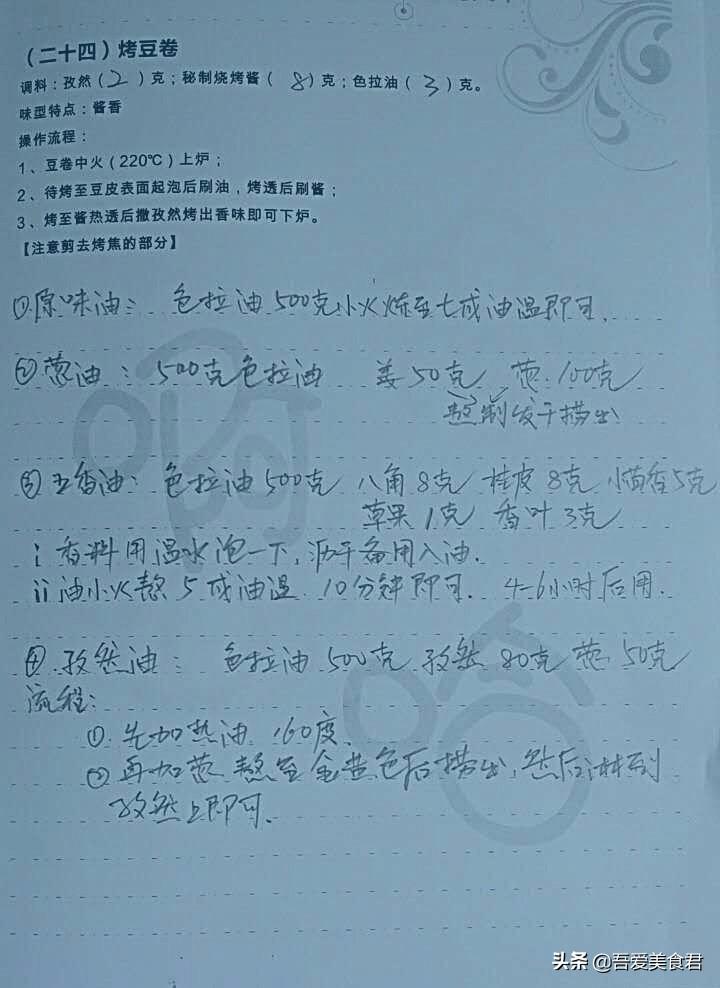 （二十四）烤豆卷
调料：孜然（2）克；秘制烧烤酱（8）克；色拉油（3）克。
味型特点：酱香
操作流程：
1、豆卷中火（220℃）上炉；
2、待烤至豆皮表面起泡后刷油，烤透后刷酱；
3、烤至酱热透后撒孜然烤出香味即可下炉。
【注意剪去烤焦的部分】
①原味油： 色拉油500克小火炼至七成油温即可.
②葱油： 500克色拉油 姜50克 葱100克
熬制发干捞出
③五香油：色拉油500克 八角8克 桂皮8克 小茴香5克
草果1克 香叶3克
i 香料用温水泡一下,沥干备用入油.
ii 油小火熬5成油温 10分钟即可. 4-6小时后用.
④.孜然油： 色拉油500克 孜然80克 葱50克
流程：
①.先加热油 160度.
②再加葱熬至金黄色后捞出,然后淋到
孜然上即可.
啊
哈
头条 @吾爱美食君